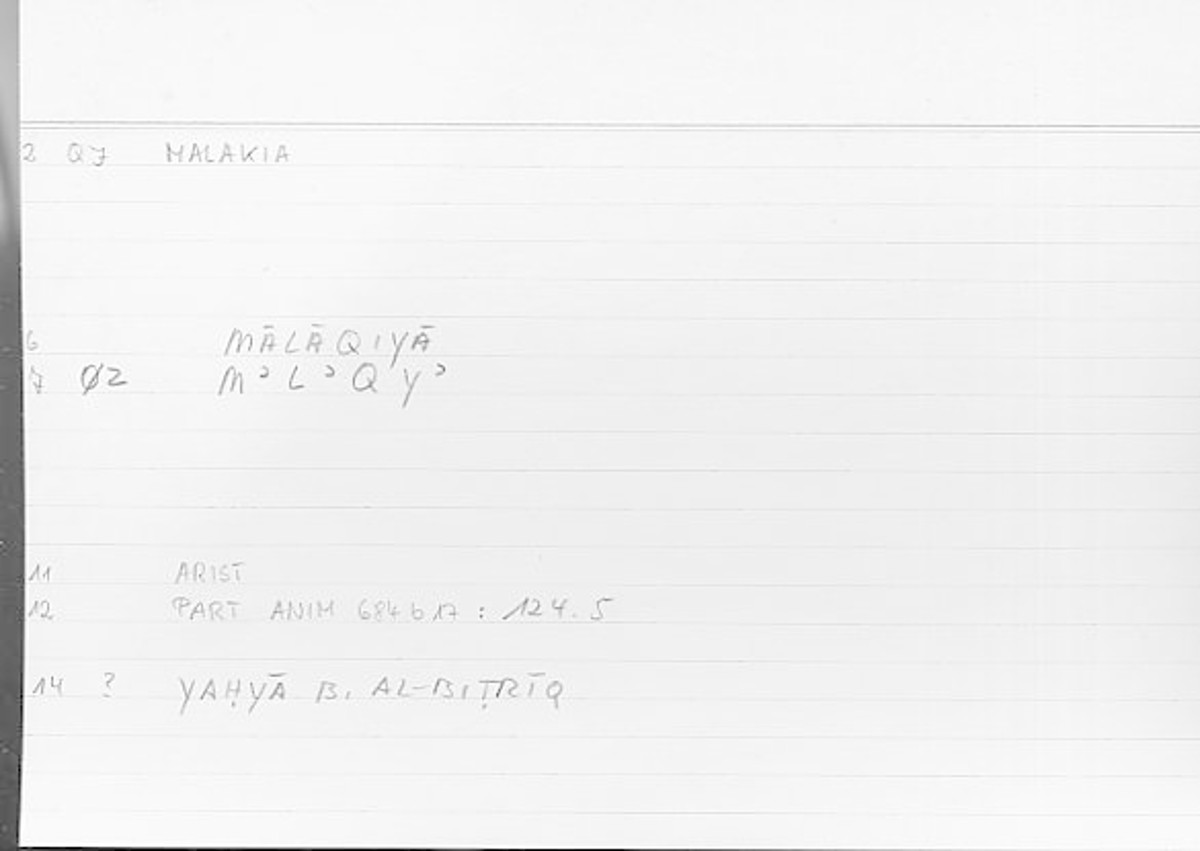 2 Q7 MALAKIA
6 MĀLĀQIYĀ
7 Ø2 MʾLʾQYʾ
11 ARIST
12 PART ANIM 684 b 17 : 124.5
14 ? YAḤYĀ B. AL-BIṬRĪQ